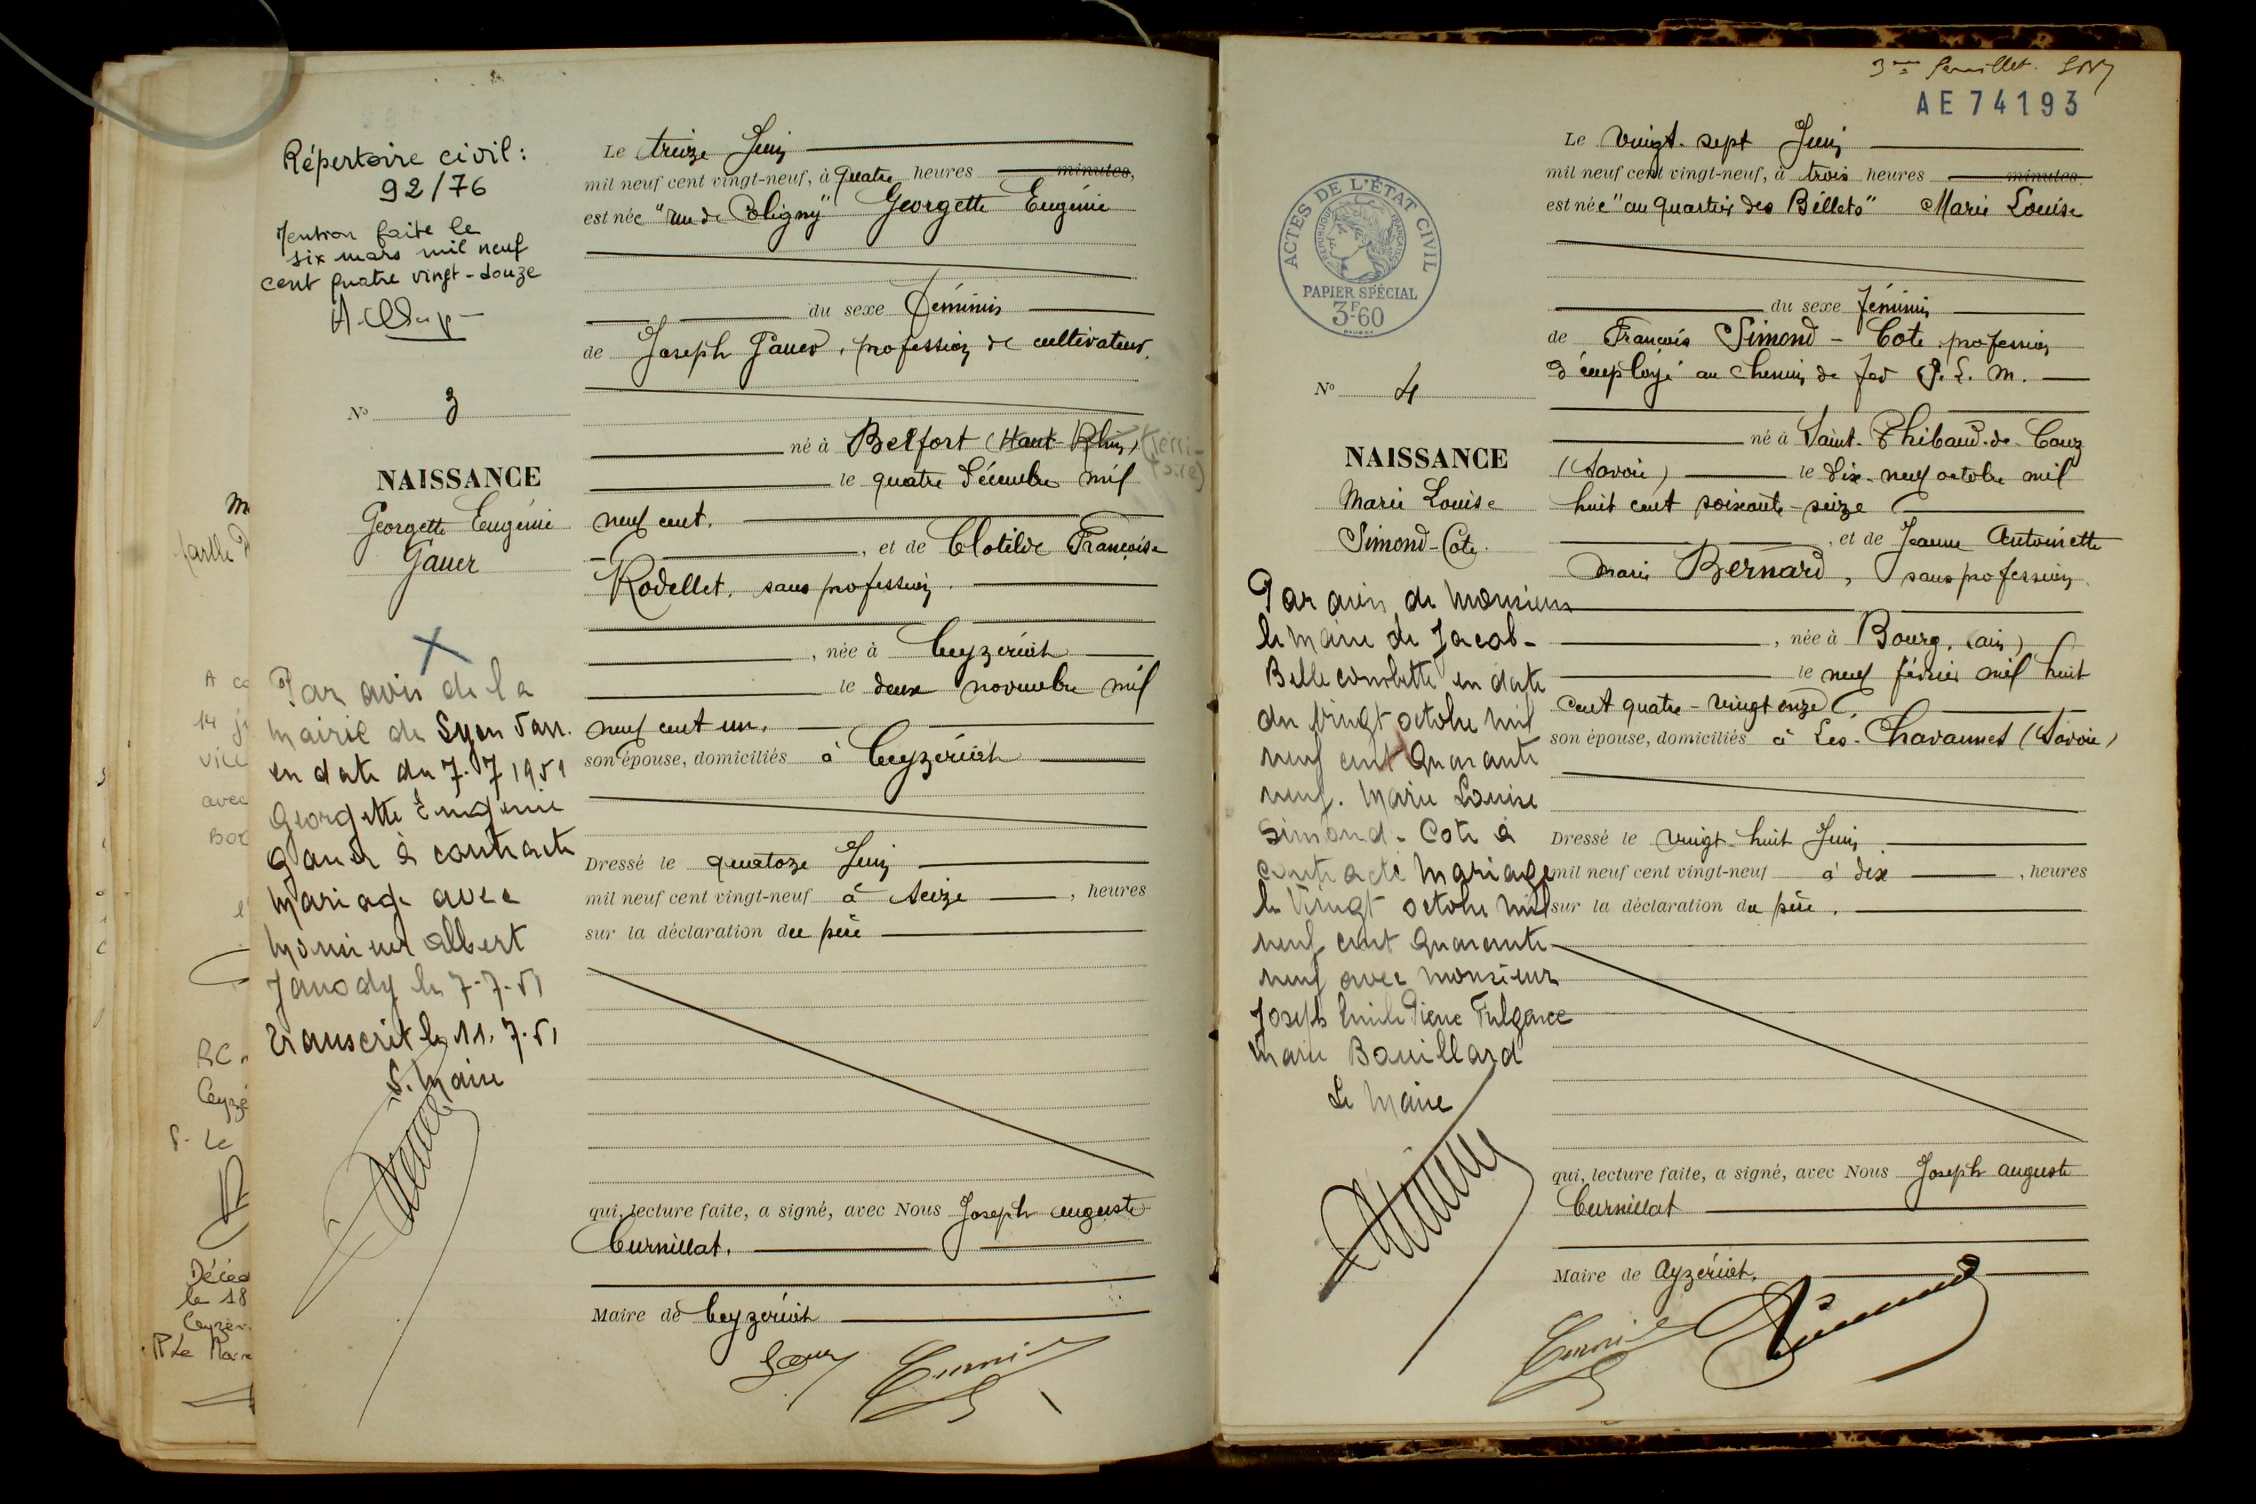 Répertoire civil :
92/76
Mention faite le
six mars mil neuf
cent quatre vingt-douze
N° 3
NAISSANCE
Georgette Eugénie
Gauer
Par avis de la
mairie de Lyon
en date du 7.7 1951
Georgette Eugénie
Gauer à contracté
mariage avec
monsieur Albert
Janody le 7-7-51
transcrit le 11.7.51
P. Maire
Le treize Juin
mil neuf cent vingt-neuf, à quatre heures minutes,
est née "rue de Coligny" Georgette Eugénie
du sexe féminin
de Joseph Gauer, profession de cultivateur,
né à Belfort (Haut-Rhin) (Terri-
toire)
le quatre Décembre mil
neuf cent.
, et de Clotilde Françoise
Rodellet, sans profession.
, née à Ceyzériat
le deux novembre mil
neuf cent un.
son épouse, domiciliés à Ceyzériat
Dressé le quatoze Juin
mil neuf cent vingt-neuf à seize , heures
sur la déclaration du père
qui, lecture faite, a signé, avec Nous Joseph auguste
Curnillat.
Maire de Ceyzériat
3me feuillet.
AE 74193
ACTES DE L'ÉTAT CIVIL
RÉPUBLIQUE FRANÇAISE
PAPIER SPÉCIAL
3F60
N° 4
NAISSANCE
Marie Louise
Simond-Cote.
Par avis de Monsieur
le maire de Jacob-
Bellecombette en date
du vingt octobre mil
neuf cent quarante
neuf. Marie Louise
Simond-Cote à
contracté mariage
le vingt octobre mil
neuf cent quarante
neuf avec monsieur
Joseph Emile Pierre Fulgence
Marie Bouillard
Le Maire
Le vingt-sept Juin
mil neuf cent vingt-neuf, à trois heures minutes.
est née "au quartier des Billets" Marie Louise
du sexe féminin
de François Simond-Cote, profession
d'employé au chemin de fer P. L. M.
né à Saint-Thibaud-de-Couz
(Savoie) le dix-neuf octobre mil
huit cent soixante-seize
, et de Jeanne Antoinette
Marie Bernard, sans profession
, née à Bourg, (ain)
le neuf février mil huit
cent quatre-vingt onze
son épouse, domiciliés à Les-Chavannes (Savoie)
Dressé le vingt-huit Juin
mil neuf cent vingt-neuf à dix , heures
sur la déclaration du père.
qui, lecture faite, a signé, avec Nous Joseph auguste
Curnillat
Maire de Ceyzériat.